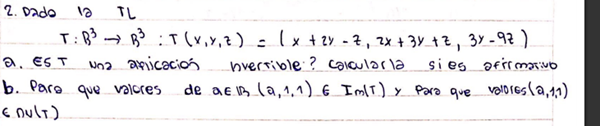 2. Dado la TL
T: R³ → R³ : T(x,y,z) = (x + 2y - z, 2x + 3y + z, 3y - 9z)
a. ES T una aplicación invertible? Calcularla si es afirmativo
b. Para que valores de a∈R (a,1,1) ∈ Im(T) y para que valores (a,1,1)
∈ NU(T)